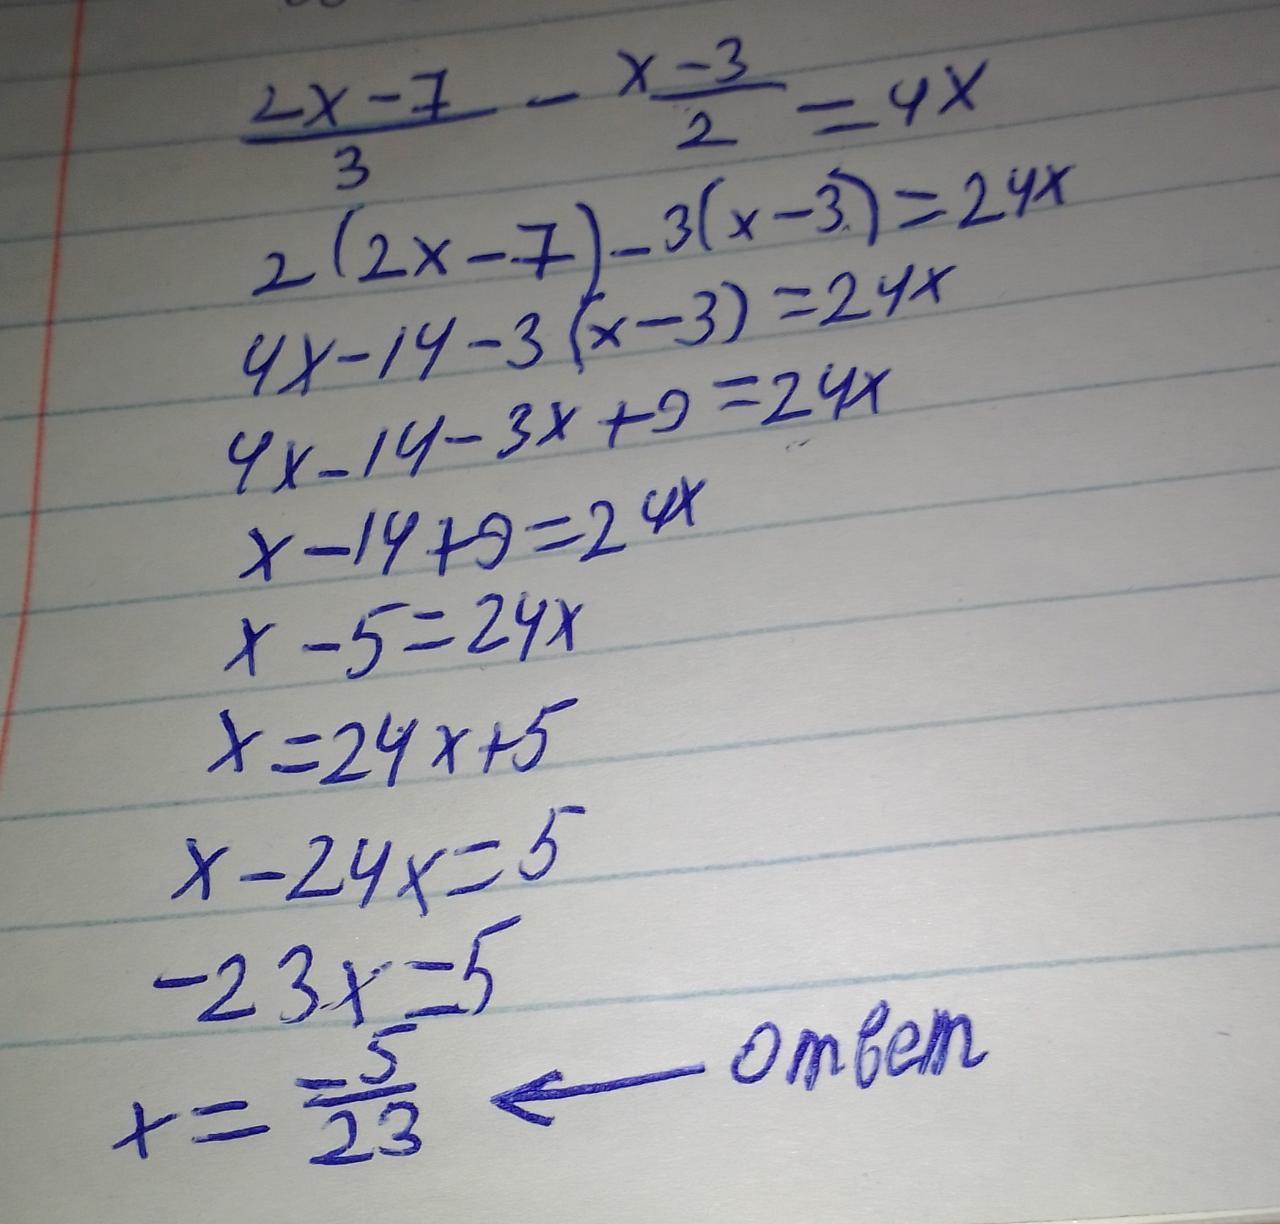 (2x-7)/3 - (x-3)/2 = 4x
2(2x-7)-3(x-3)=24x
4x-14-3(x-3)=24x
4x-14-3x+9=24x
x-14+9=24x
x-5=24x
x=24x+5
x-24x=5
-23x=5
x= -5/23 ← ответ